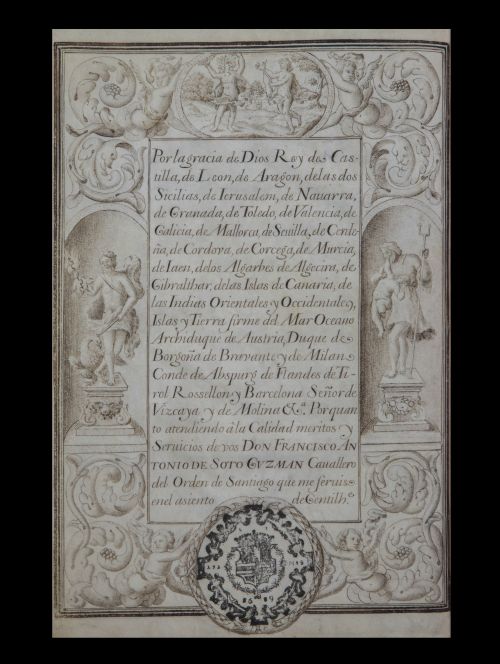 Por la gracia de Dios Rey de Cas-
tilla, de Leon, de Aragon, de las dos
Sicilias, de Ierusalem, de Nauarra,
de Granada, de Toledo, de Valencia, de
Galicia, de Mallorca, de Seuilla, de Cerde-
ña, de Cordova, de Corcega, de Murcia,
de Iaen, de los Algarbes de Algecira, de
Gibralthar, de las Islas de Canaria, de
las Indias Orientales y Occidentales,
Islas y Tierra firme del Mar Oceano
Archiduque de Austria, Duque de
Borgoña de Brevante y de Milan
Conde de Abspurg de Flandes de Ti-
rol Rossellon y Barcelona Señor de
Vizcaya y de Molina &c.ª Porquan
to atendiendo â la Calidad meritos y
Seruicios de vos DON FRANCISCO AN
TONIO DE SOTO GVZMAN Cauallero
del Orden de Santiago que me seruis
en el asiento de Gentilh.º